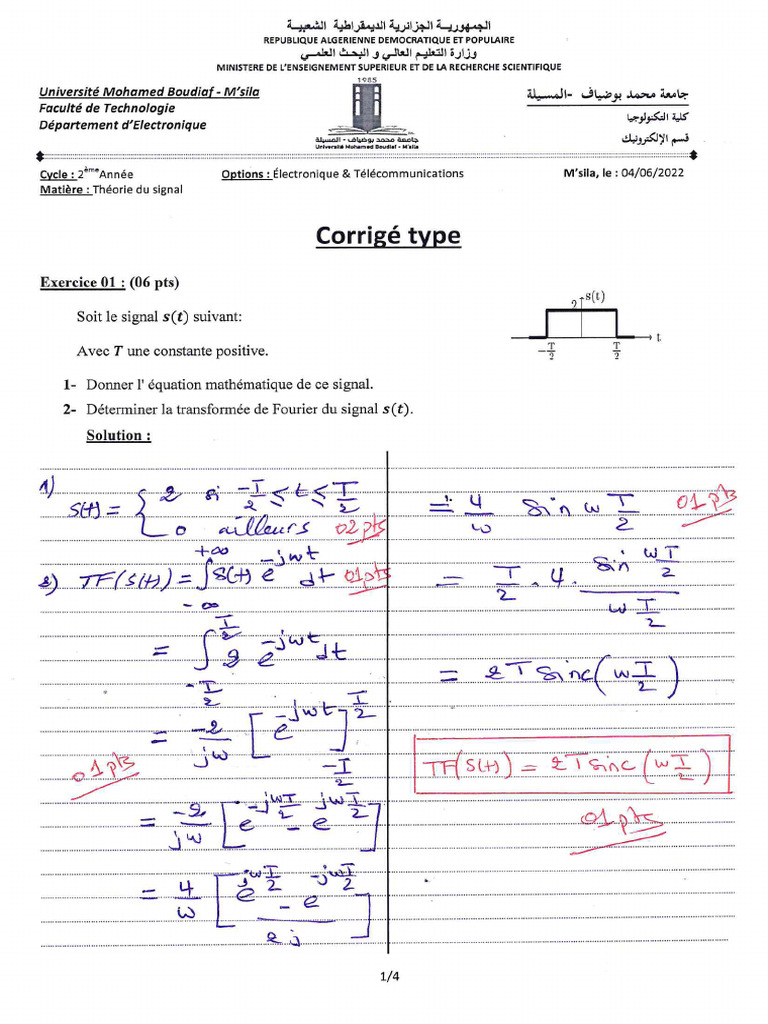 الجمهوريــة الجزائرية الديمقراطية الشعبيــة
REPUBLIQUE ALGERIENNE DEMOCRATIQUE ET POPULAIRE
وزارة التعليـم العالـي و البحـث العلمـي
MINISTERE DE L'ENSEIGNEMENT SUPERIEUR ET DE LA RECHERCHE SCIENTIFIQUE
Université Mohamed Boudiaf - M'sila
Faculté de Technologie
Département d'Electronique
1985
جامعة محمد بوضياف - المسيلة
Université Mohamed Boudiaf - M'sila
جامعة محمد بوضياف -المسيلة
كلية التكنولوجيا
قسم الإلكترونيك
Cycle : 2ème Année Options : Électronique & Télécommunications M'sila, le : 04/06/2022
Matière : Théorie du signal
Corrigé type
Exercice 01 : (06 pts)
Soit le signal s(t) suivant:
Avec T une constante positive.
1- Donner l' équation mathématique de ce signal.
2- Déterminer la transformée de Fourier du signal s(t).
2 s(t)
-T/2 T/2 t
Solution :
1)
S(t) = { 2 si -T/2 ≤ t ≤ T/2
0 ailleurs 02 pts
2) TF(S(t)) = ∫_{-∞}^{+∞} S(t) e^{-jwt} dt 01 pts
= ∫_{-T/2}^{T/2} 2 e^{-jwt} dt
= -2/jw [e^{-jwt}]_{-T/2}^{T/2}
01 pts
= -2/jw [e^{-jwT/2} - e^{jwT/2}]
= 4/w [(e^{jwT/2} - e^{-jwT/2})/2j]
= 4/w Sin w T/2 01 pts
= T/2 . 4 . (Sin wT/2)/(w T/2)
= 2T Sinc(w T/2)
TF(S(t)) = 2T sinc(w T/2)
01 pts
1/4